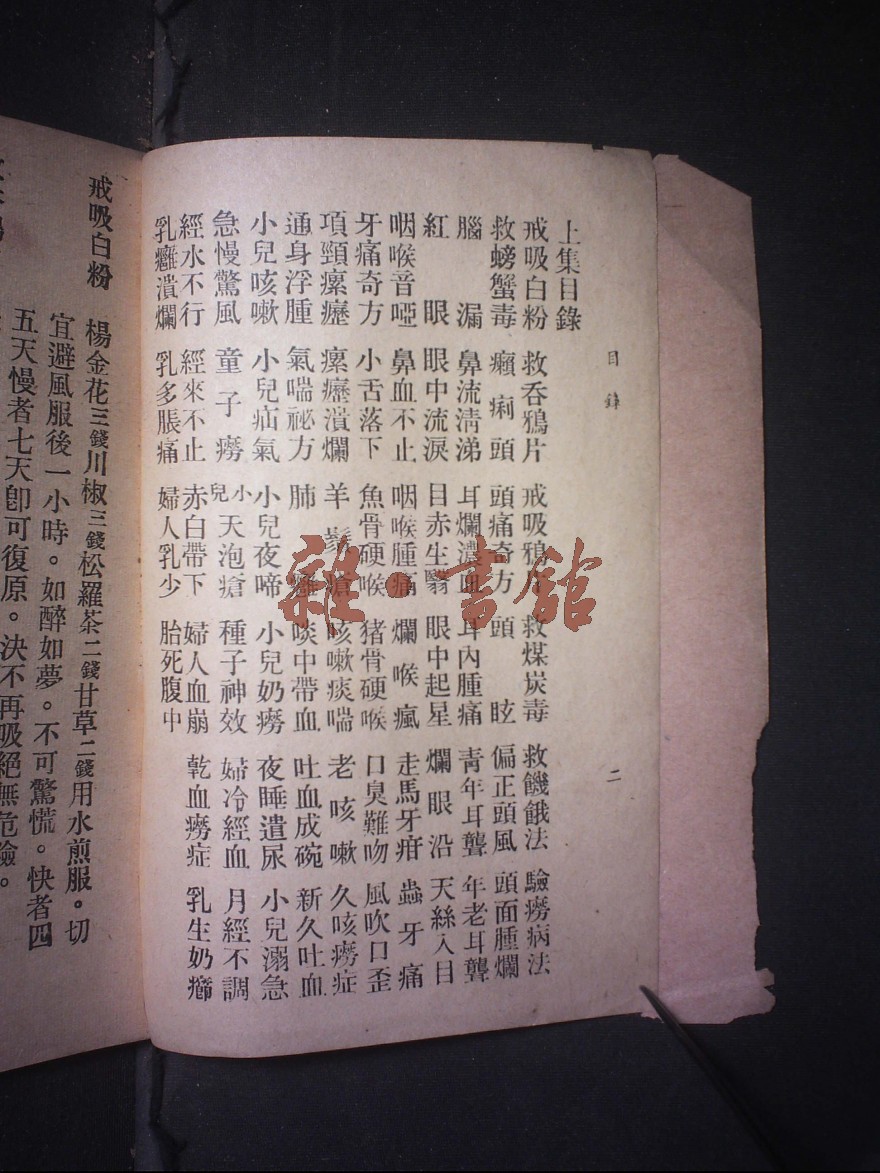 目錄 二
上集目錄
戒吸白粉 救吞鴉片 戒吸鴉片 救煤炭毒 救饑餓法 驗癆病法
救螃蟹毒 癩痢頭 頭痛奇方 頭眩 偏正頭風 頭面腫爛
腦漏 鼻流淸涕 耳爛濃血 耳內腫痛 青年耳聾 年老耳聾
紅眼 眼中流淚 目赤生翳 眼中起星 爛眼沿 天絲入目
咽喉音啞 鼻血不止 咽喉腫痛 爛喉瘋 走馬牙疳 蟲牙痛
牙痛奇方 小舌落下 魚骨硬喉 猪骨硬喉 口臭難吻 風吹口歪
項頸瘰癧 瘰癧潰爛 羊鬍瘡 咳嗽痰喘 老咳嗽 久咳癆症
通身浮腫 氣喘祕方 肺癰 啖中帶血 吐血成碗 新久吐血
小兒咳嗽 小兒疝氣 小兒夜啼 小兒奶癆 夜睡遺尿 小兒溺急
急慢驚風 童子癆 小兒天泡瘡 種子神效 婦冷經血 月經不調
經水不行 經來不止 赤白帶下 婦人血崩 乾血癆症 乳生奶癤
乳癰潰爛 乳多脹痛 婦人乳少 胎死腹中
戒吸白粉 楊金花三錢川椒三錢松羅茶二錢甘草二錢用水煎服。切
宜避風服後一小時。如醉如夢。不可驚慌。快者四
五天慢者七天卽可復原。決不再吸絕無危險。
雜·書館